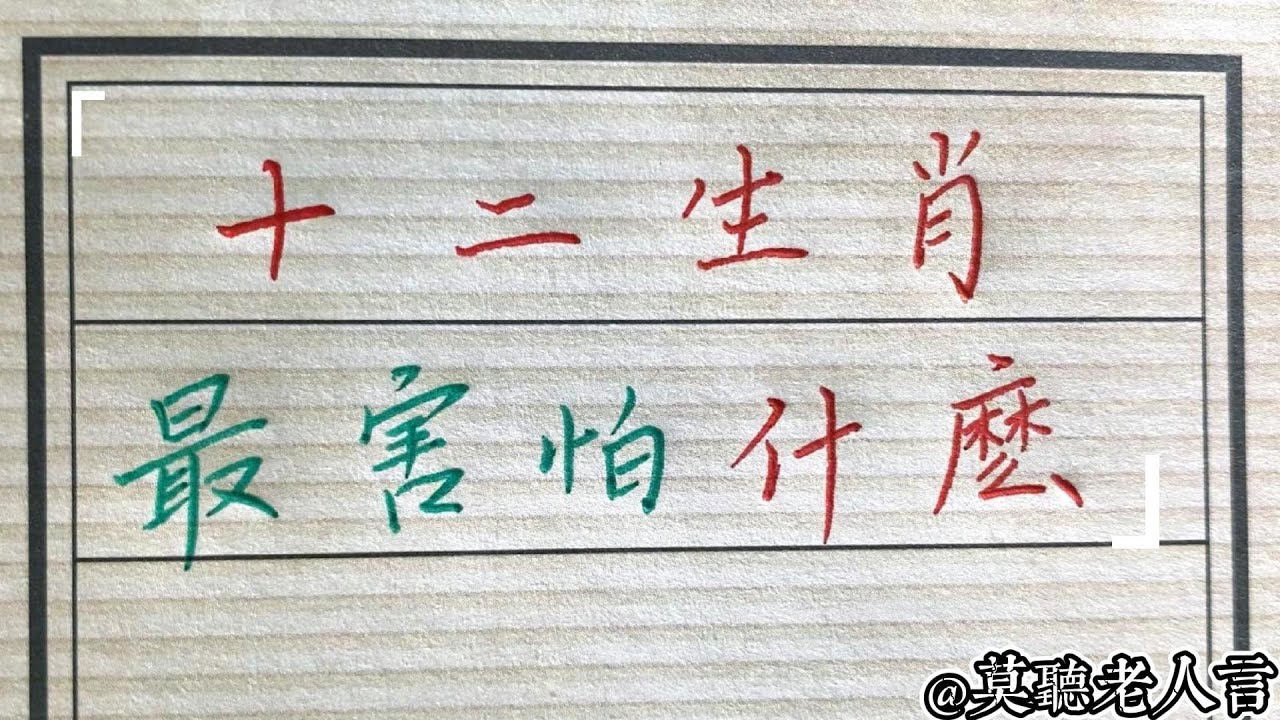 十二生肖
最害怕什麼
@莫聽老人言